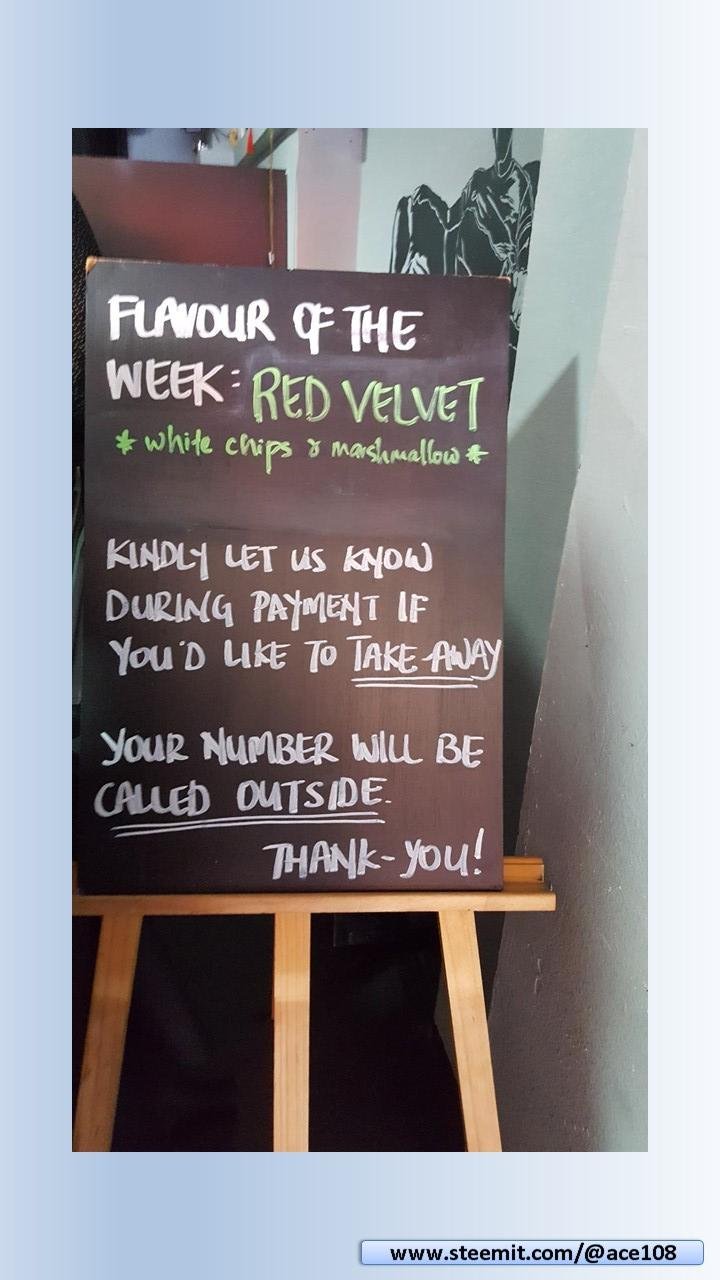 FLAVOUR OF THE
WEEK: RED VELVET
* white chips & marshmallow *
KINDLY LET US KNOW
DURING PAYMENT IF
YOU'D LIKE TO TAKE-AWAY
YOUR NUMBER WILL BE
CALLED OUTSIDE.
THANK-YOU!
www.steemit.com/@ace108